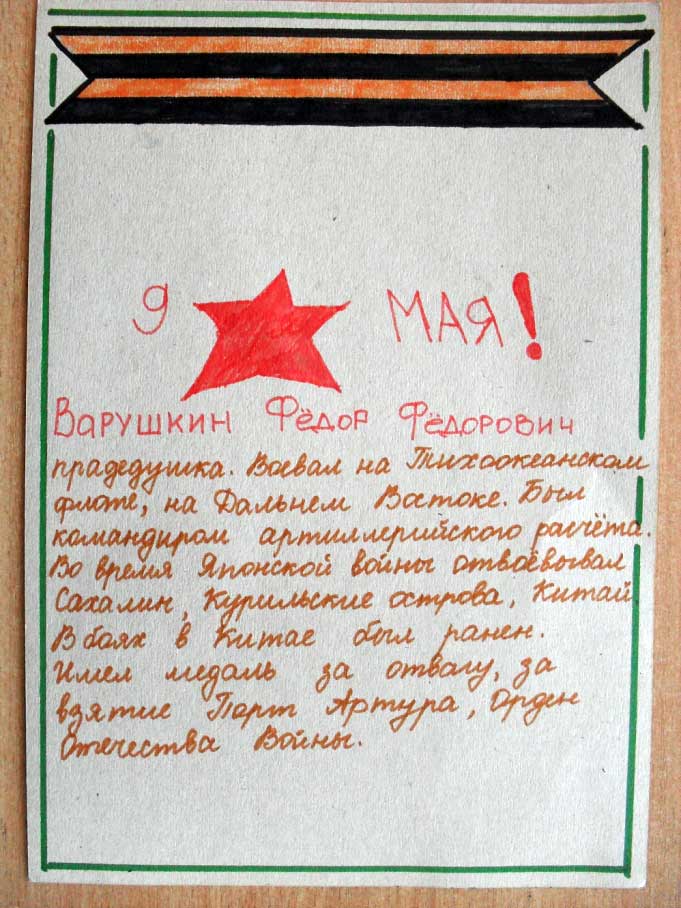 9 МАЯ!
ВАРУШКИН ФЁДОР ФЁДОРОВИЧ
прадедушка. Воевал на Тихоокеанском
флоте, на Дальнем Востоке. Был
командиром артиллерийского расчёта.
Во время Японской войны отвоёвывал
Сахалин, Курильские острова, Китай
В боях в Китае был ранен.
Имел медаль за отвагу, за
взятие Порт Артура, Орден
Отечества Войны.